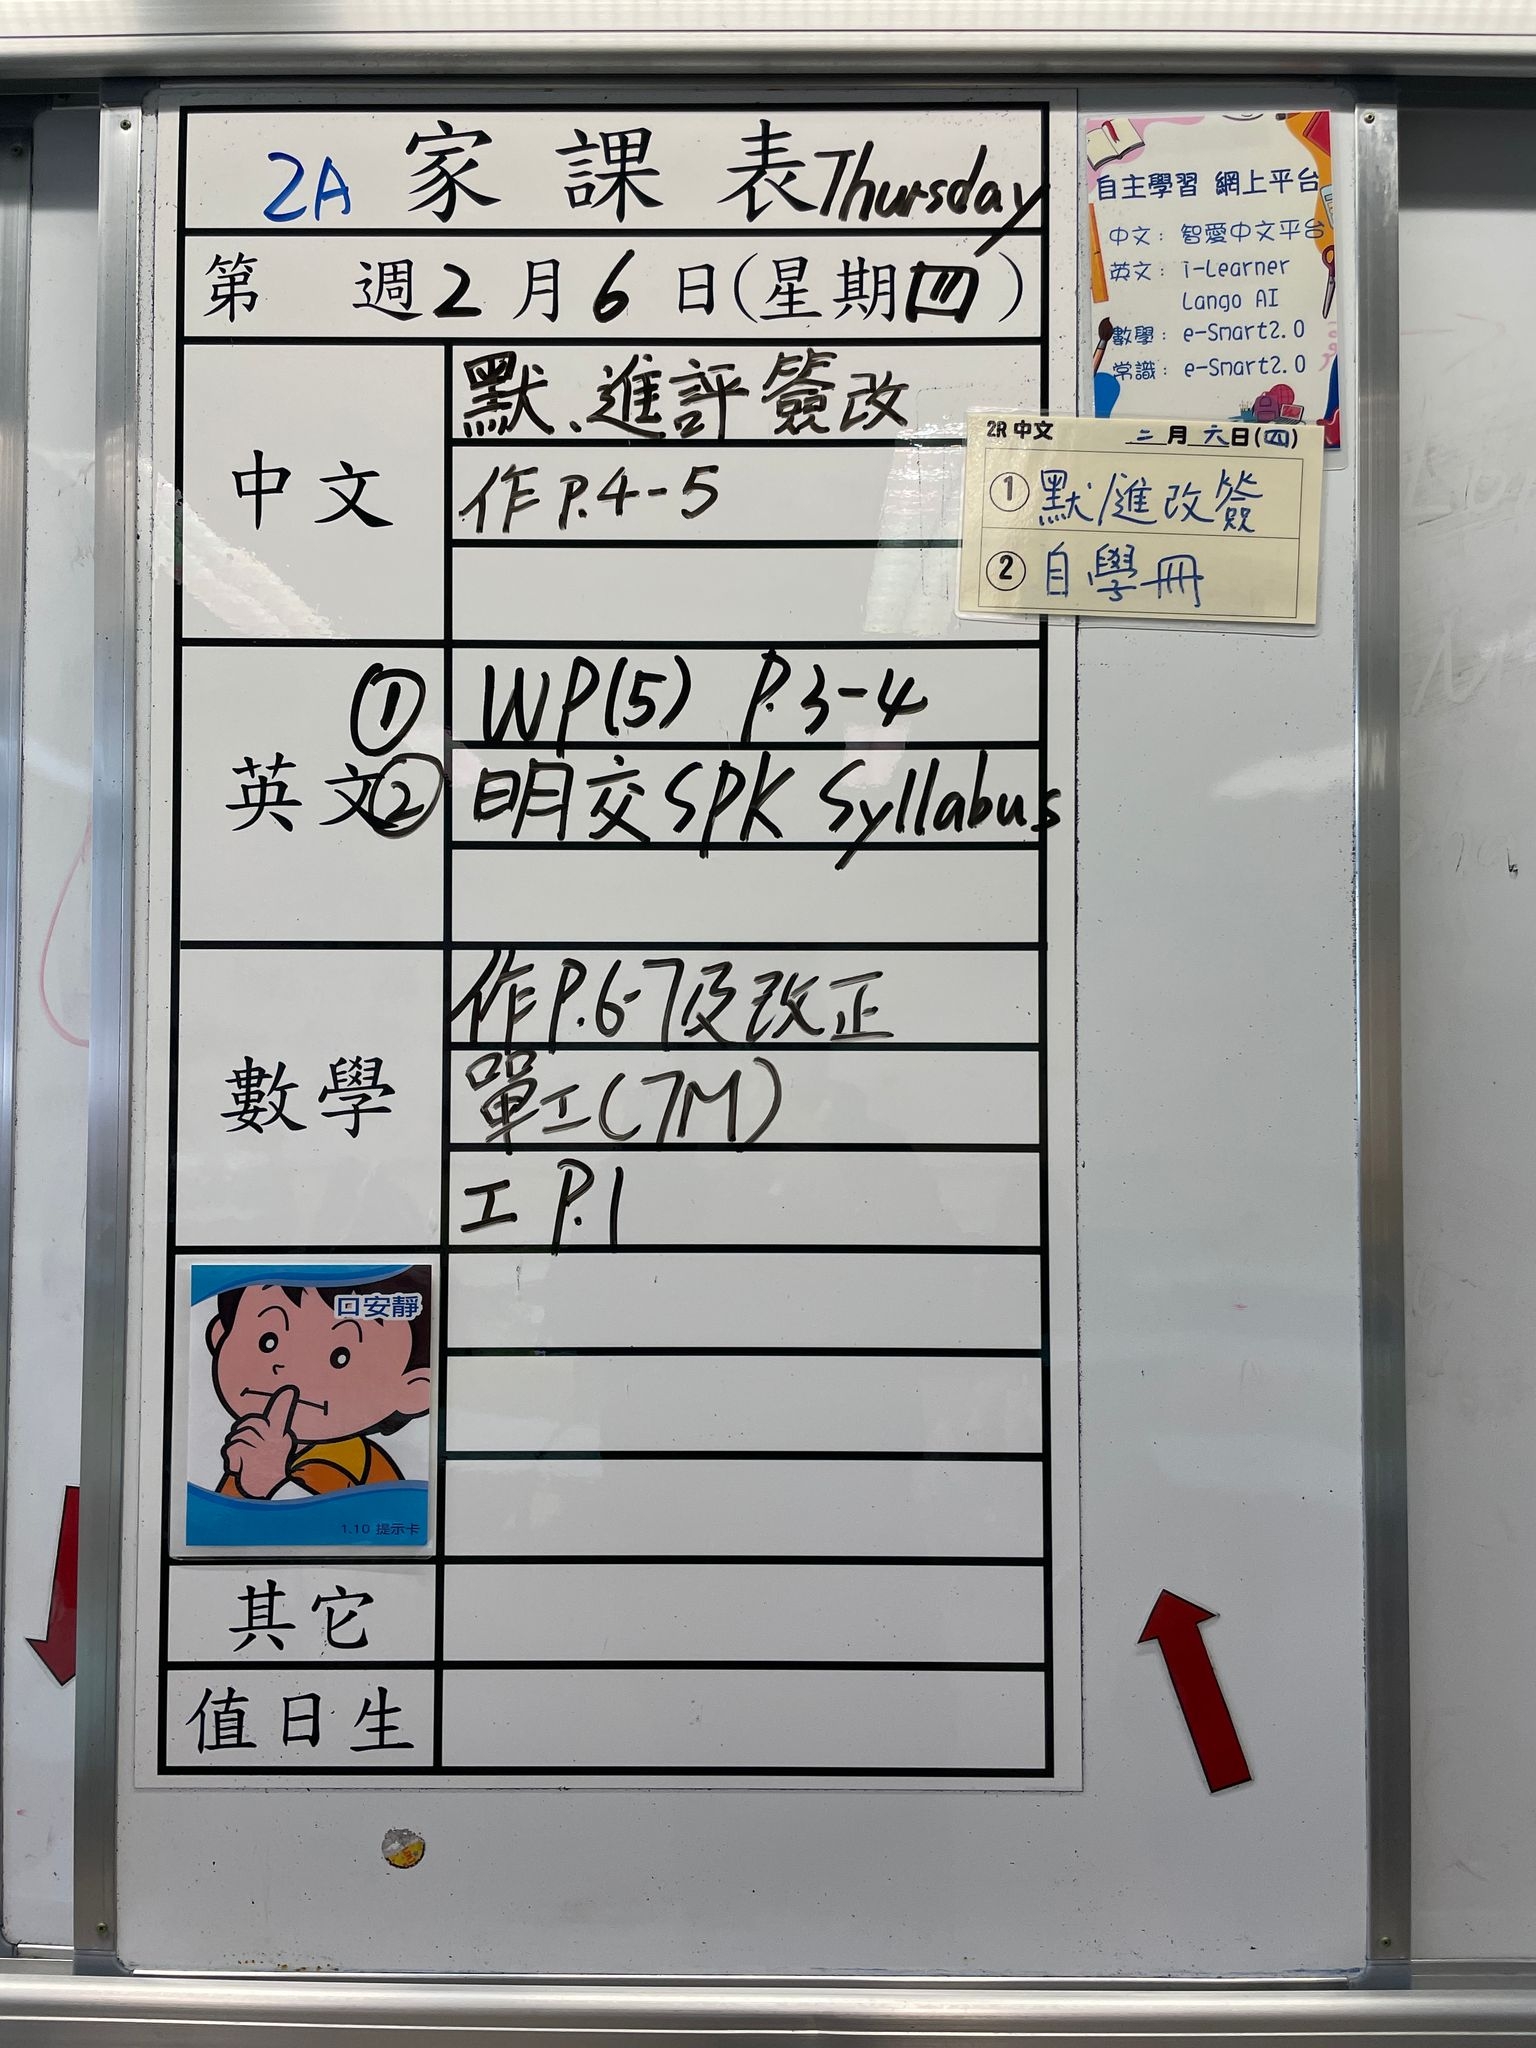 2A 家課表 Thursday
第 週 2 月 6 日(星期四)
中文
默、進評簽改
作 P.4-5
英文
① WP(5) P.3-4
② 明交 SPK Syllabus
數學
作 P.6-7及改正
單工(7M)
工 P.1
口安靜
1.10 提示卡
其它
值日生
自主學習 網上平台
中文: 智愛中文平台
英文: i-Learner
Lango AI
數學: e-Smart2.0
常識: e-Smart2.0
2R 中文 二月六日(四)
① 默/進改簽
② 自學冊